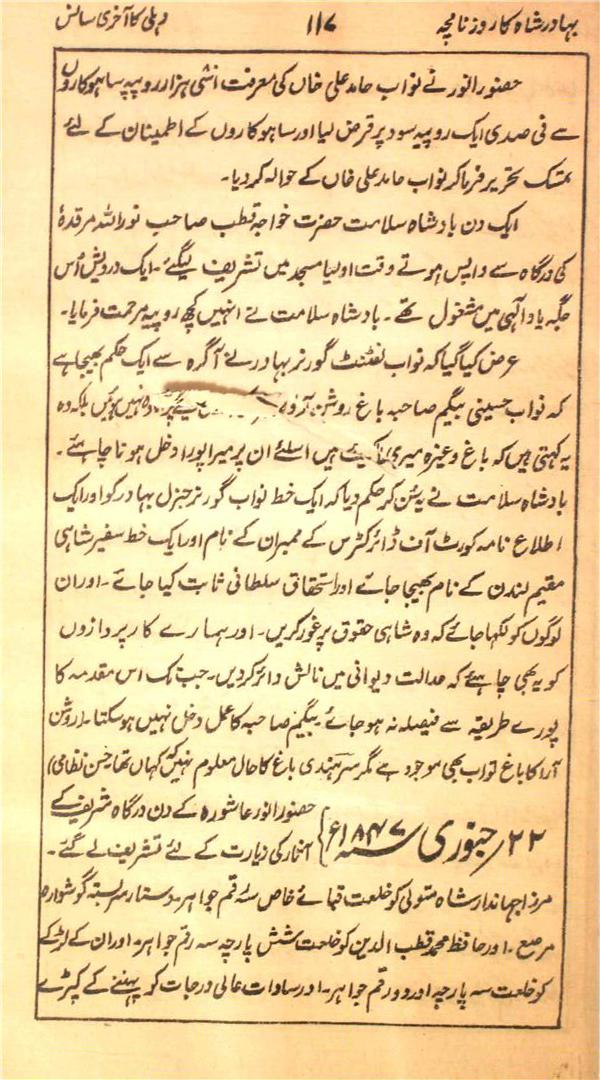 بہادر شاہ کا روزنامچہ ۱۱۷ دہلی کا آخری سانس
حضور انور نے نواب حامد علی خاں کی معرفت انسّی ہزار روپیہ ساہوکاروں
سے فی صدی ایک روپیہ سود پر قرض لیا اور ساہوکاروں کے اطمینان کے لئے
تمسک تحریر فرما کر نواب حامد علی خاں کے حوالہ کر دیا۔
ایک دن بادشاہ سلامت حضرت خواجہ قطب صاحب نور اللہ مرقدہٗ
کی درگاہ سے واپس ہوتے وقت اولیا مسجد میں تشریف لیگئے۔ ایک درویش اُس
جگہ یاد الٰہی میں مشغول تھے۔ بادشاہ سلامت نے انہیں کچھ روپیہ مرحمت فرمایا۔
عرض کیا گیا کہ نواب لفٹنٹ گورنر بہادر نے آگرہ سے ایک حکم بھیجا ہے
کہ نواب حسینی بیگم صاحبہ باغ روشن آرا نہیں ہوئیں بلکہ وہ
یہ کہتی ہیں کہ باغ وغیرہ میری ملکیت ہیں اسلئے ان پر میرا پورا دخل ہونا چاہئے۔
بادشاہ سلامت نے یہ سُن کر حکم دیا کہ ایک خط نواب گورنر جنرل بہادر کو اور ایک
اطلاع نامہ کورٹ آف ڈائرکٹرس کے ممبران کے نام اور ایک خط سفیر شاہی
مقیم لندن کے نام بھیجا جائے اور استحقاق سلطانی ثابت کیا جائے۔ اور ان
لوگوں کو لکھا جائے کہ وہ شاہی حقوق پر غور کریں۔ اور ہمارے کار پردازوں
کو یہ بھی چاہئے کہ عدالت دیوانی میں نالش دائر کر دیں۔ جب تک اس مقدمہ کا
پورے طریقہ سے فیصلہ نہ ہو جائے بیگم صاحبہ کا عمل دخل نہیں ہو سکتا۔ (روشن
آرا کا باغ تو اب بھی موجود ہے مگر سرہندی باغ کا حال معلوم نہیں کہاں تھا، حسن نظامی)
۲۲ / جنوری ۱۸۴۷ء } حضور انور عاشورہ کے دن درگاہ شریف کے
آثار کی زیارت کے لئے تشریف لے گئے۔
مرزا جہاندار شاہ متولی کو خلعت قبائے خاص سہ رقم جواہر۔ دستار سربستہ گوشوارہ
مرصع۔ اور حافظ محمد قطب الدین کو خلعت شش پارچہ سہ رقم جواہر۔ اور ان کے لڑکے
کو خلعت سہ پارچہ اور دو رقم جواہر۔ اور سادات عالی درجات کو پہننے کے کپڑے